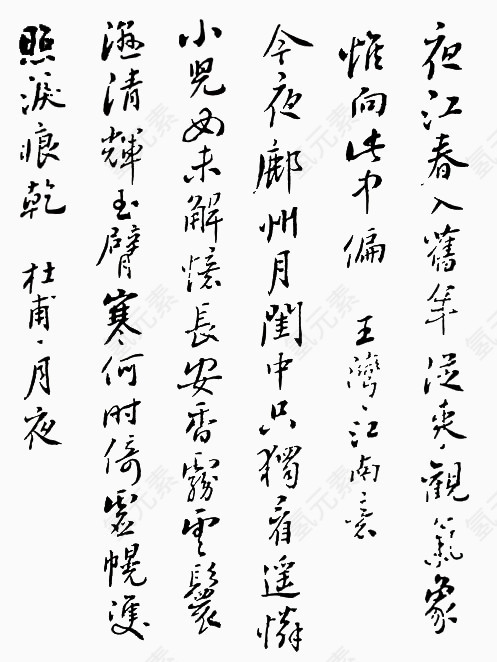 夜江春入舊年從來觀氣象
惟向此中偏 王灣·江南意
今夜鄜州月閨中只獨看遙憐
小兒女未解憶長安香霧雲鬟
濕清輝玉臂寒何時倚虛幌雙
照淚痕乾 杜甫·月夜